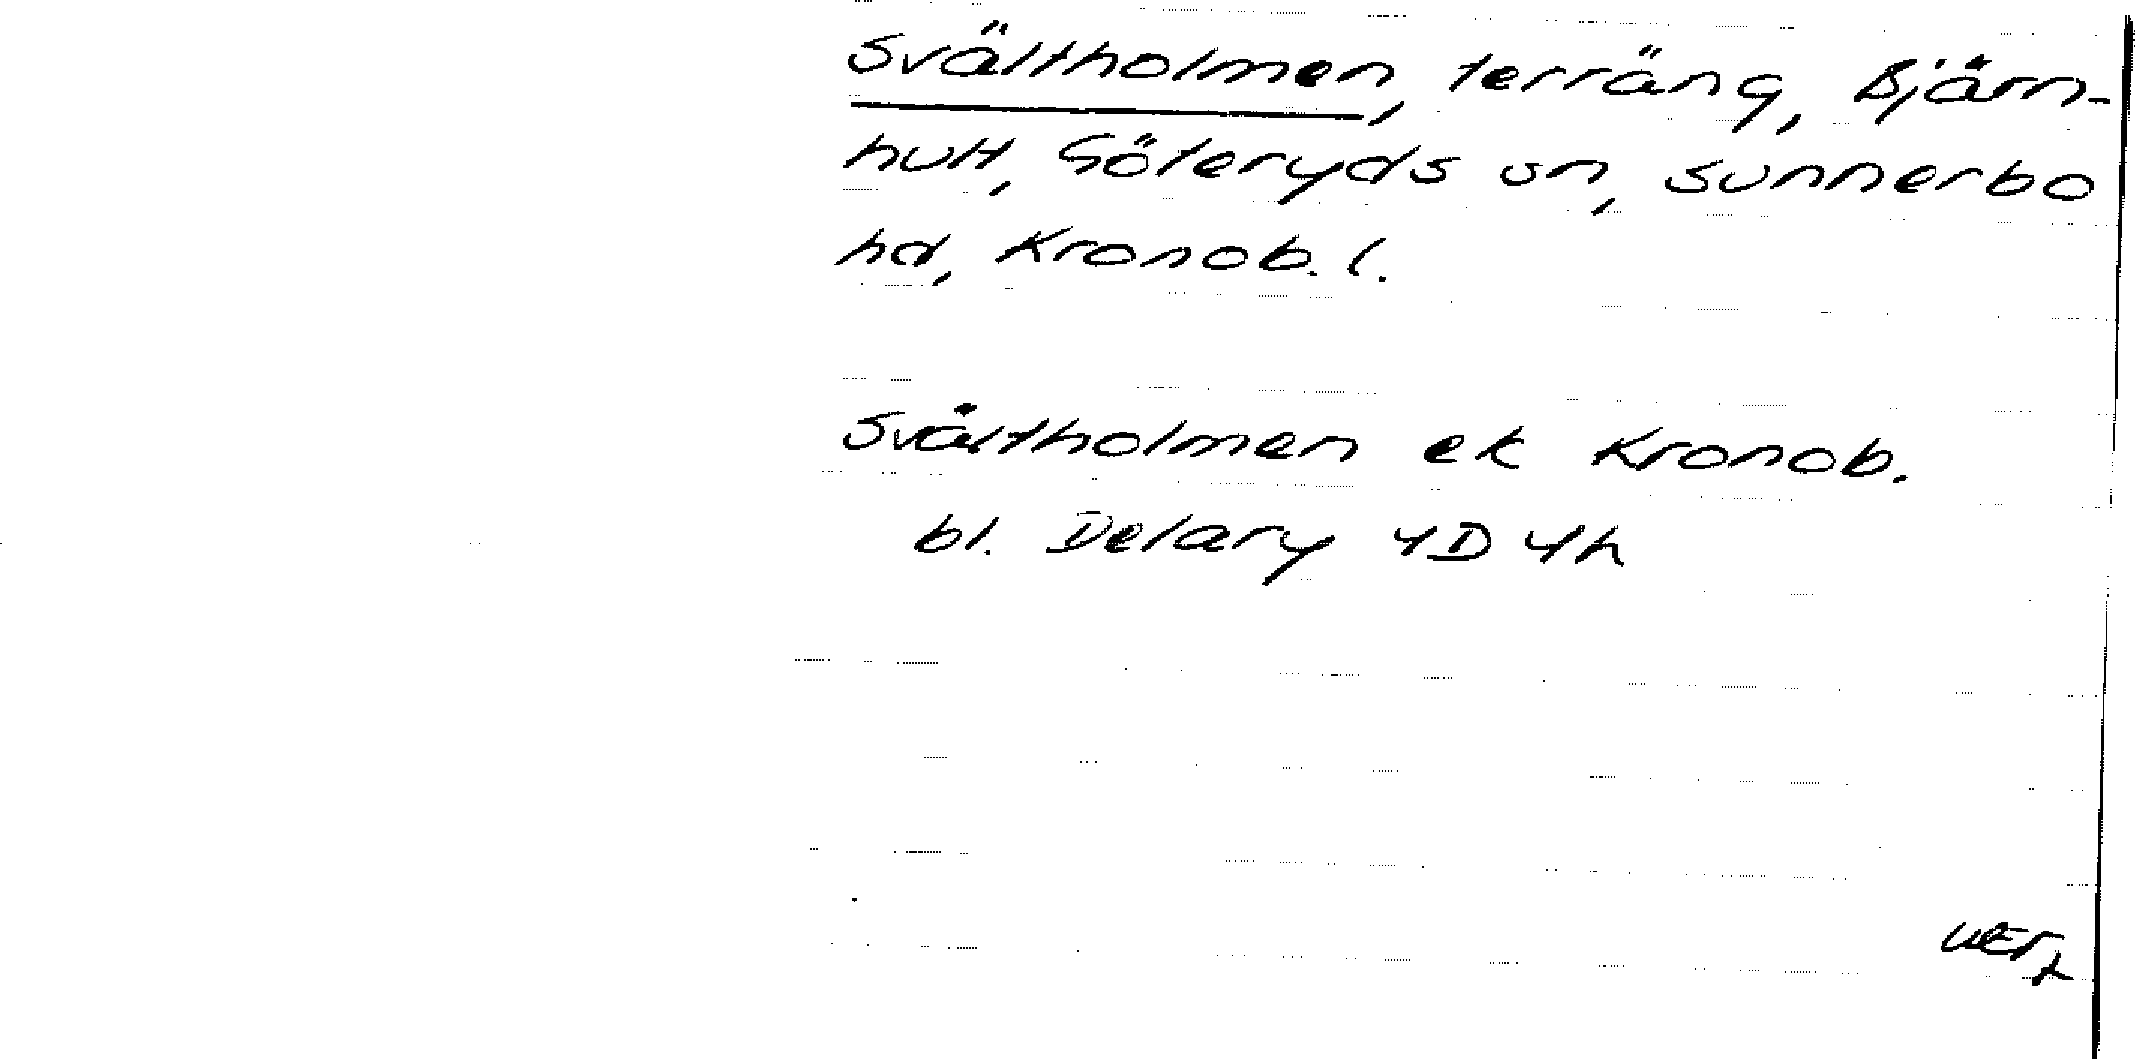 Svältholmen, terräng, Bjärn-
hult, Göteryds sn, Sunnerbo
hd, Kronob. l.
Svältholmen ek Kronob.
bl. Delary 4D 4h